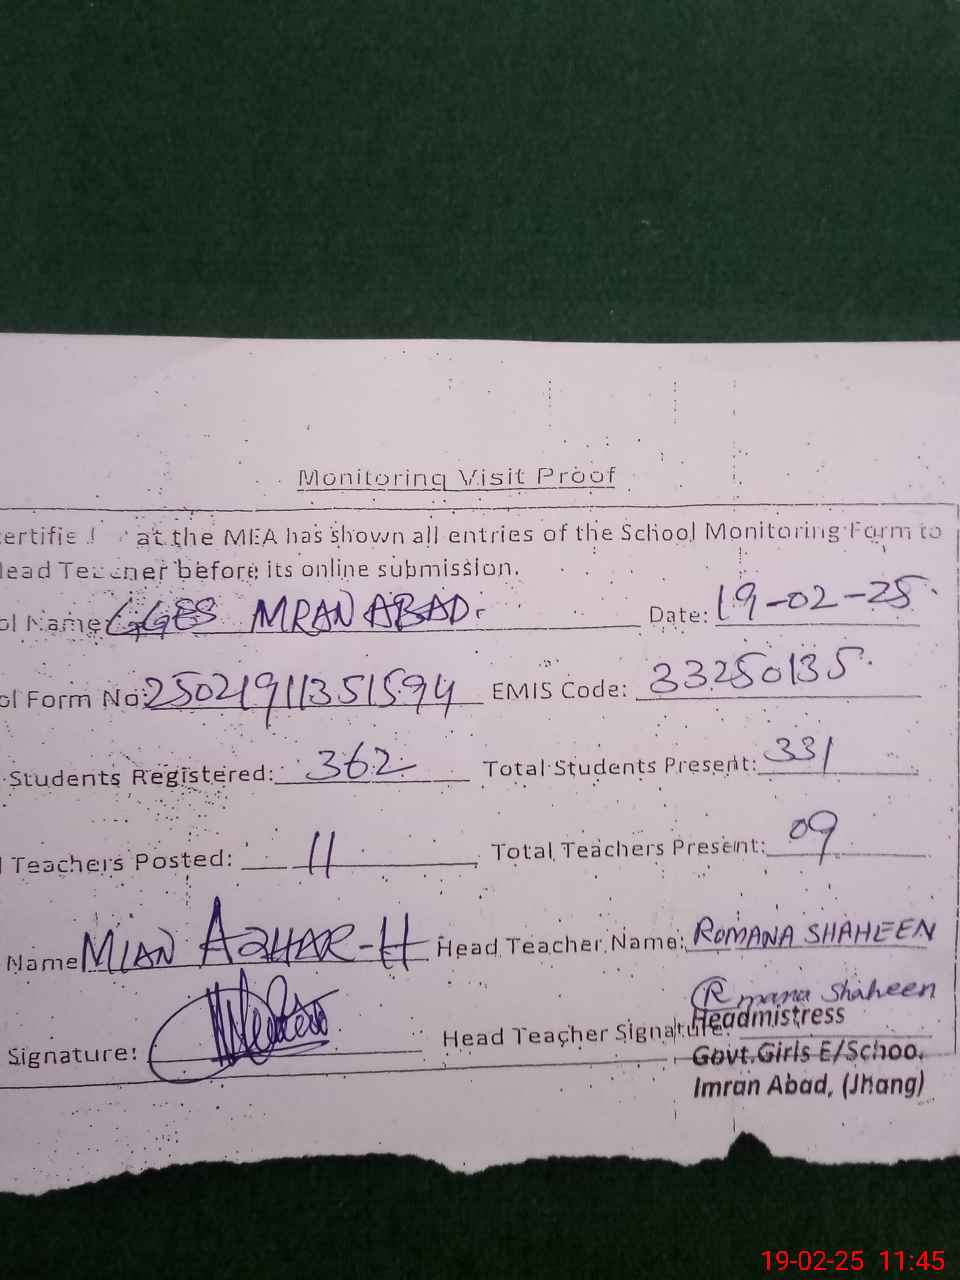 Monitoring Visit Proof
at the MEA has shown all entries of the School Monitoring Form to
before its online submission.
ol Name GGES MRAN ABAD. Date: 19-02-25.
ol Form No: 25021911351594 EMIS Code: 33250135.
Students Registered: 362 Total Students Present: 331
l Teachers Posted: 11 Total Teachers Present: 09
Name MIAN AZHAR-H Head Teacher Name: ROMANA SHAHEEN
Romana Shaheen
Signature: Head Teacher Signature:
Headmistress
Govt.Girls E/Schoo.
Imran Abad, (Jhang)
19-02-25 11:45